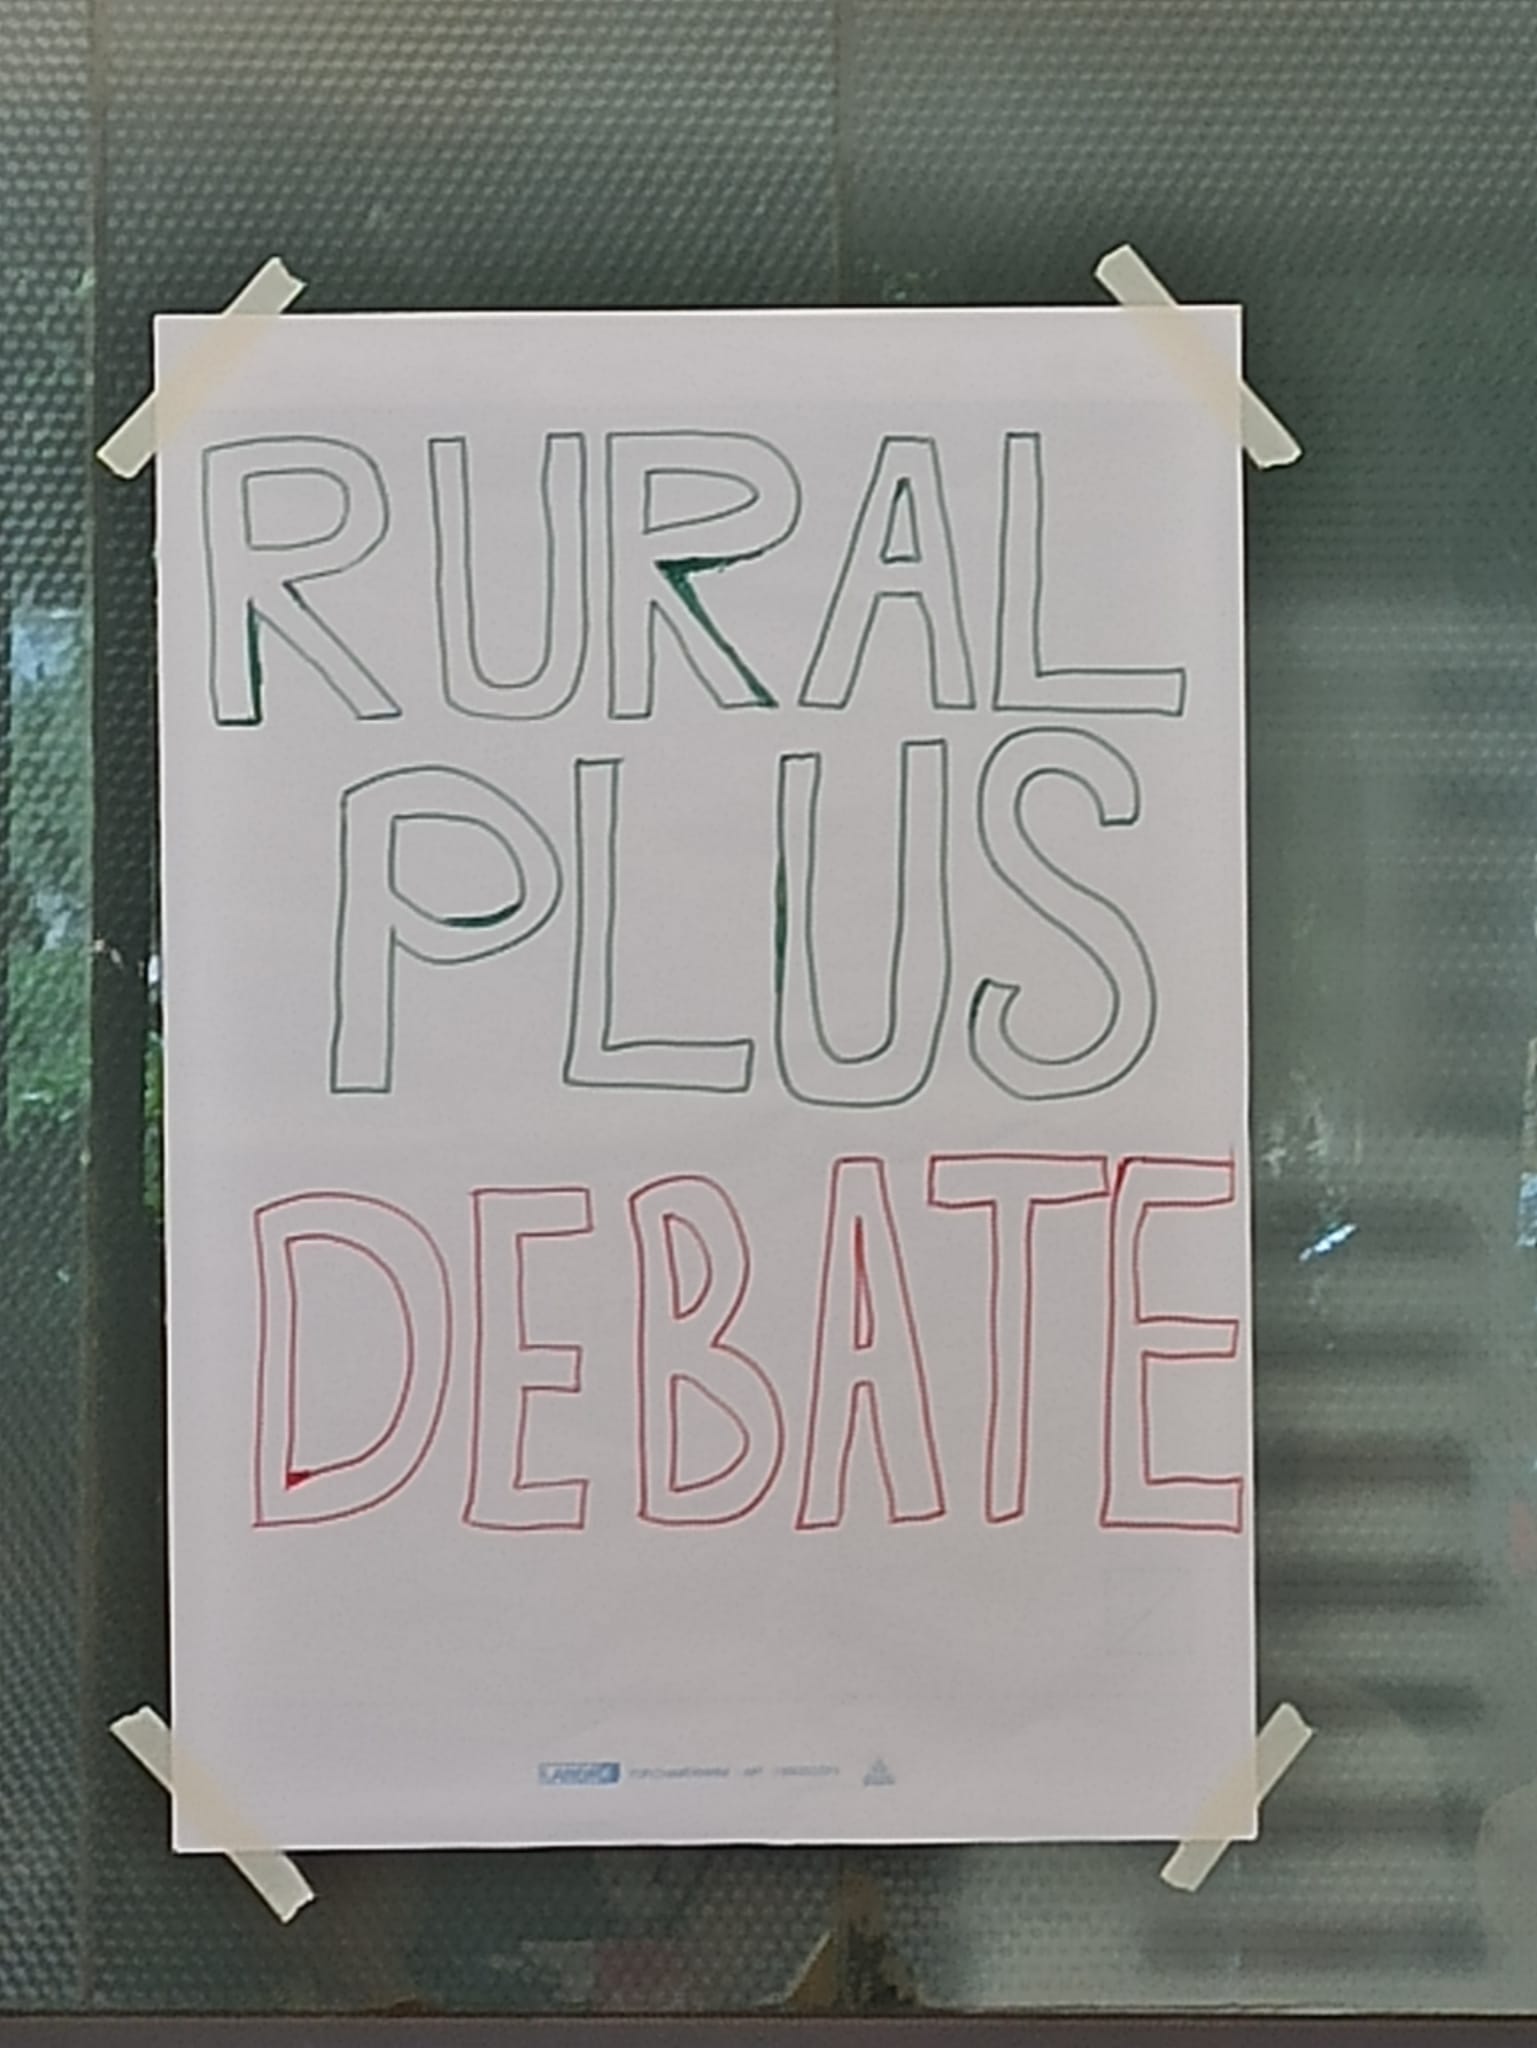 RURAL
PLUS
DEBATE